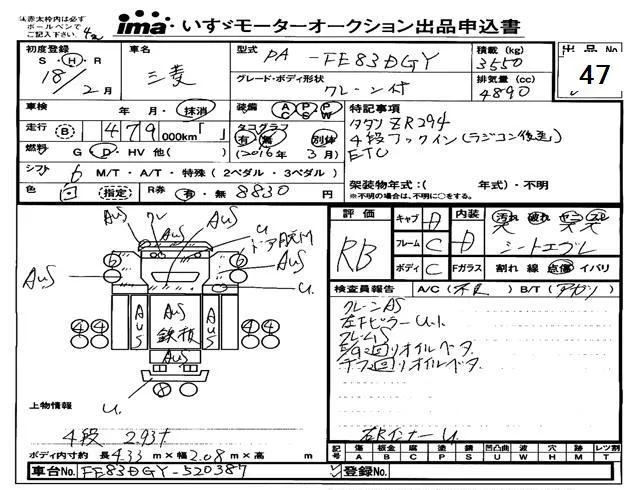 △赤太枠内は必ず
ボールペンで
ご記入下さい
ima・いすゞモーターオークション出品申込書
初度登録
S・H・R
18/2月
車名
三菱
型式
PA-FE83DGY
グレード・ボディ形状
クレーン付
積載(kg)
3550
排気量(cc)
4890
出品No
47
車検 年・月・抹消
走行 B 479 000km「 」
燃料 G・D・HV・他( )
シフト 6 M/T・A/T・特殊(2ペダル・3ペダル)
色 指定 R券 有・無 8830円
装備 AC PS PW
タコグラフ
有 無 別体
(2016年 3月)
特記事項
タダノ ZR294
4段フックイン(ラジコン後差)
ETC
架装物年式:( 年式)・不明
※不明の場合は、不明に○をする。
AuS
クレ
AuS
U
ドア内天M
AuS
AuS
AuS
6
6
U.
AuS
AuS
鉄板
AuS
4 4
4 4
AuS
8
U.
評価
RB
キャブ D
フレーム C
ボディ C
内装 D
汚れ 破れ コゲ スレ
シートエブレ
Fガラス 割れ 線 点傷 イバリ
検査員報告 A/C(不良) B/T(アガリ)
クレーンAS
左Fピラー U.1.
フレームS
E/g回りオイルベタ
デフ回りオイルベタ
右Rインナー U.
上物情報
4段 2.93t
ボディ内寸約 長4.33m×幅2.08m×高 m
記号 傷 A 板金 B 腐 C 塗 P 錆 S 凹凸曲 U 波 W 穴 H 跡 M レツ割 T
車台No. FE83DGY-520387
登録No.